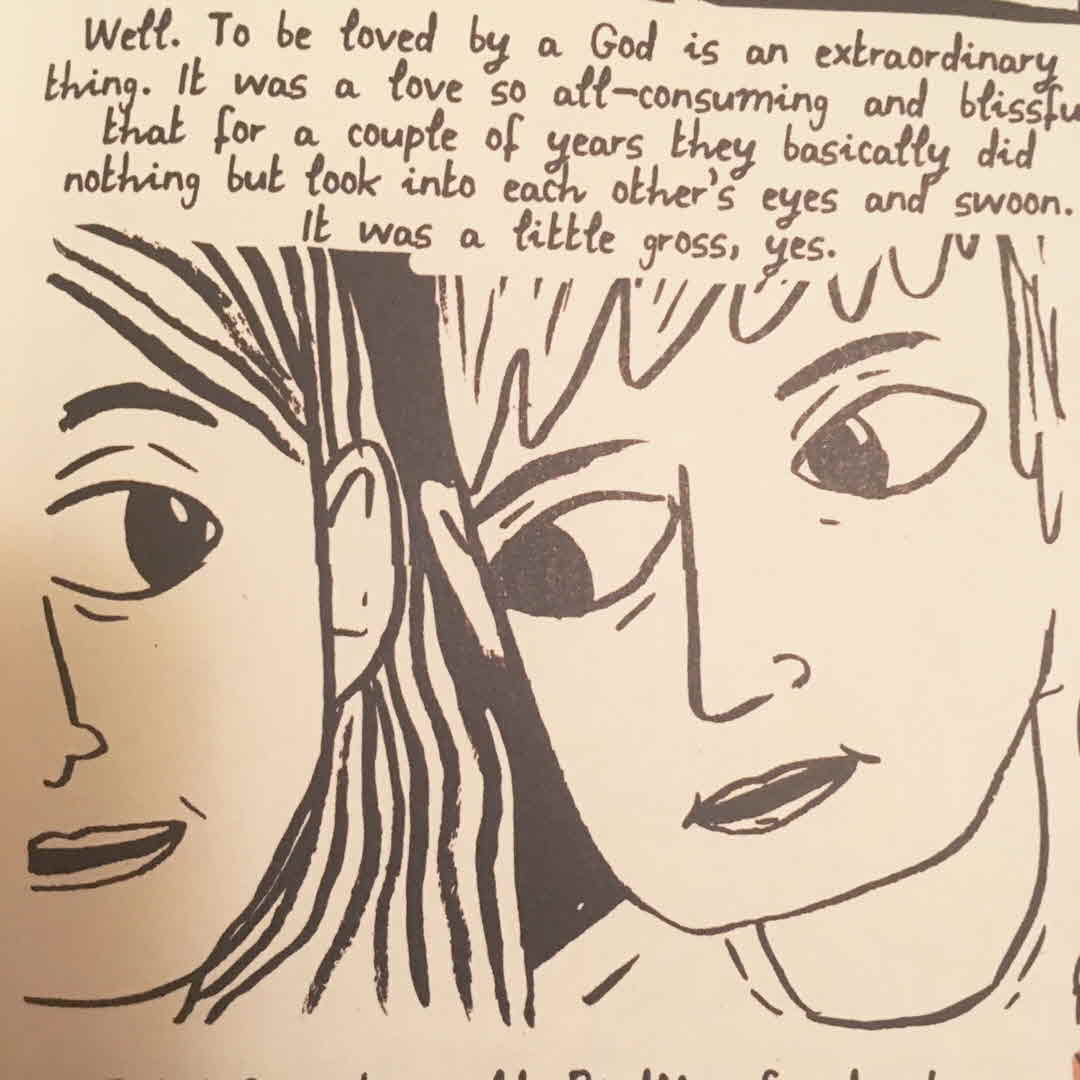 Well. To be loved by a God is an extraordinary
thing. It was a love so all-consuming and blissfu
that for a couple of years they basically did
nothing but look into each other's eyes and swoon.
It was a little gross, yes.